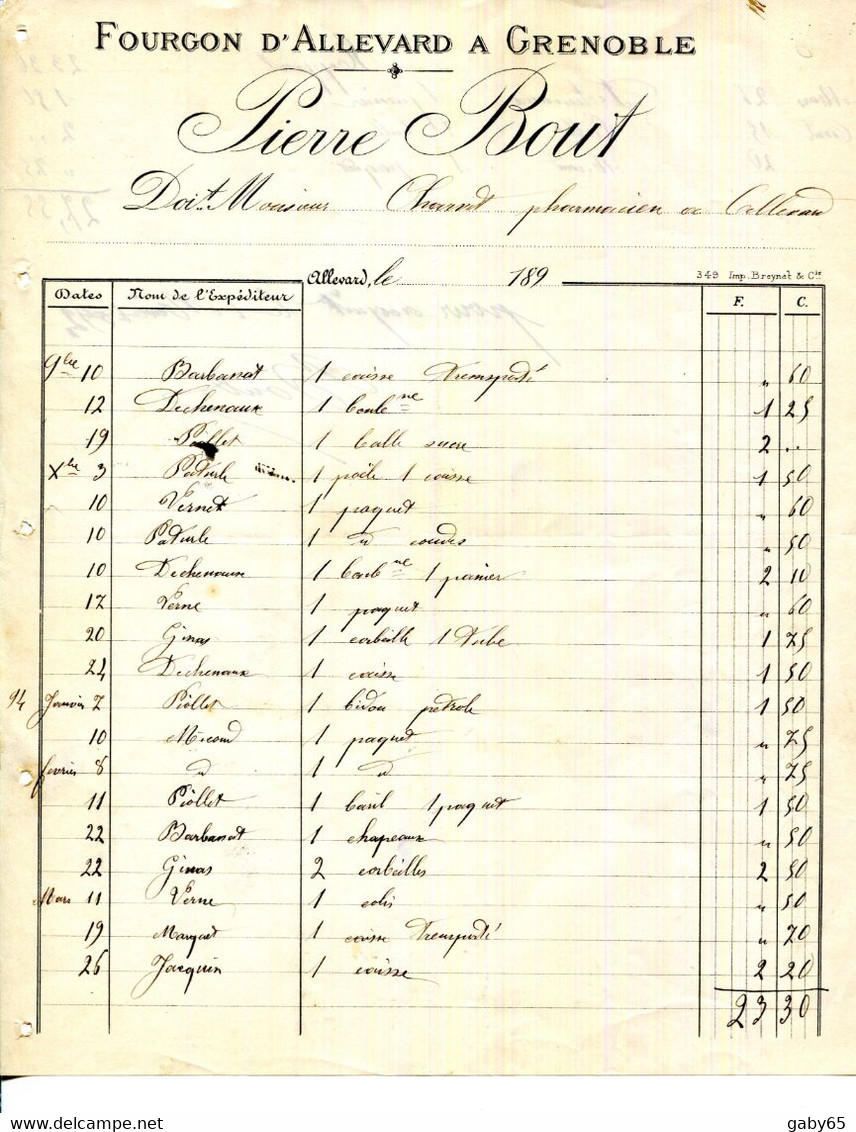 FOURGON D'ALLEVARD A GRENOBLE
Pierre Bout
Doit Monsieur Charret pharmacien a Allevard
Allevard, le 189
349 Imp. Breynat & Cie
Dates Nom de l'Expéditeur F. C.
9bre 10 Barbanat 1 caisse Transporté " 60
12 Dechenaux 1 bonbne 1 25
19 Piollet 1 balle sucre 2 ..
Xbre 3 Paturle 1 poële 1 caisse 1 50
10 Vernet 1 paquet " 60
10 Paturle 1 d coudes " 50
10 Dechenaux 1 bonbne 1 panier 2 10
17 Verne 1 paquet " 60
20 Ginas 1 corbeille 1 Tube 1 75
24 Dechenaux 1 caisse 1 50
94 Janvier 7 Piollet 1 bidon petrole 1 50
10 Micoud 1 paquet " 75
fevrier 8 d 1 d " 75
11 Piollet 1 baril 1 paquet 1 50
22 Barbanat 1 chapeaux " 50
22 Ginas 2 corbeilles 2 50
Mars 11 Verne 1 colis " 50
19 Marquet 1 caisse Transporté " 70
26 Jacquin 1 caisse 2 20
23 30
gaby65